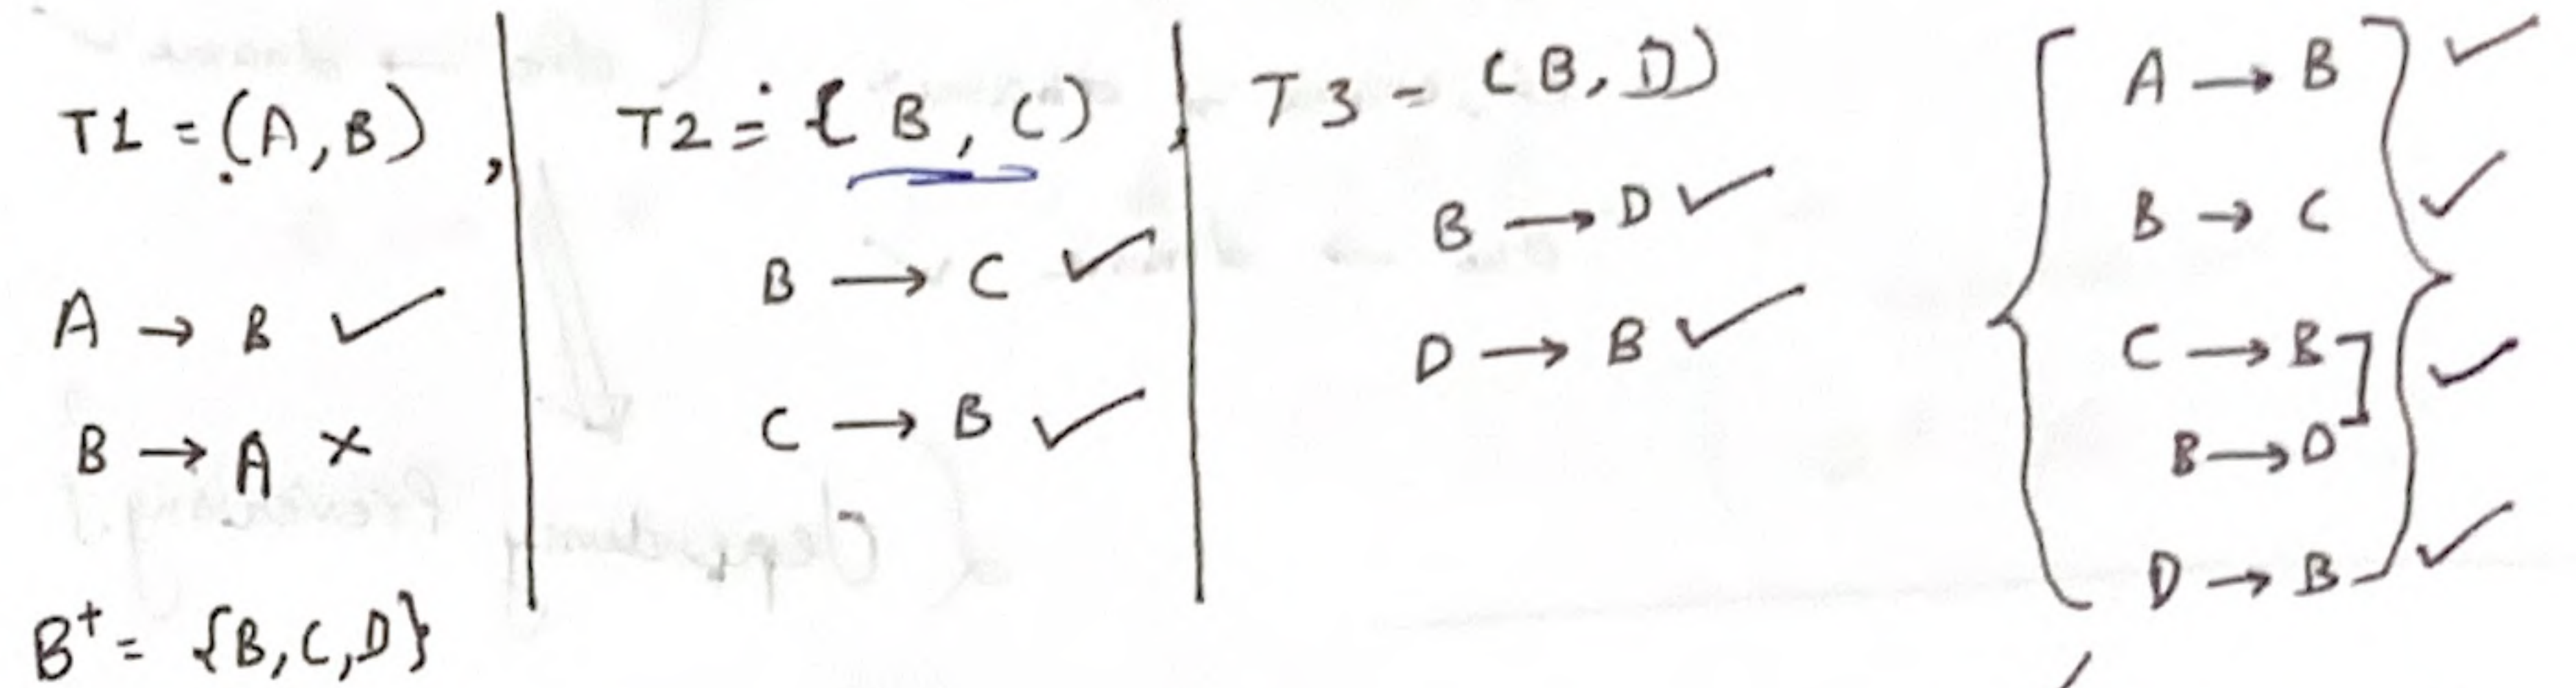 T1 = (A, B) ,
A → B ✓
B → A ×
B⁺ = {B, C, D}
T2 = { B, C) ,
B → C ✓
C → B ✓
T3 - (B, D)
B → D ✓
D → B ✓
A → B ✓
B → C ✓
C → B ✓
B → D
D → B ✓